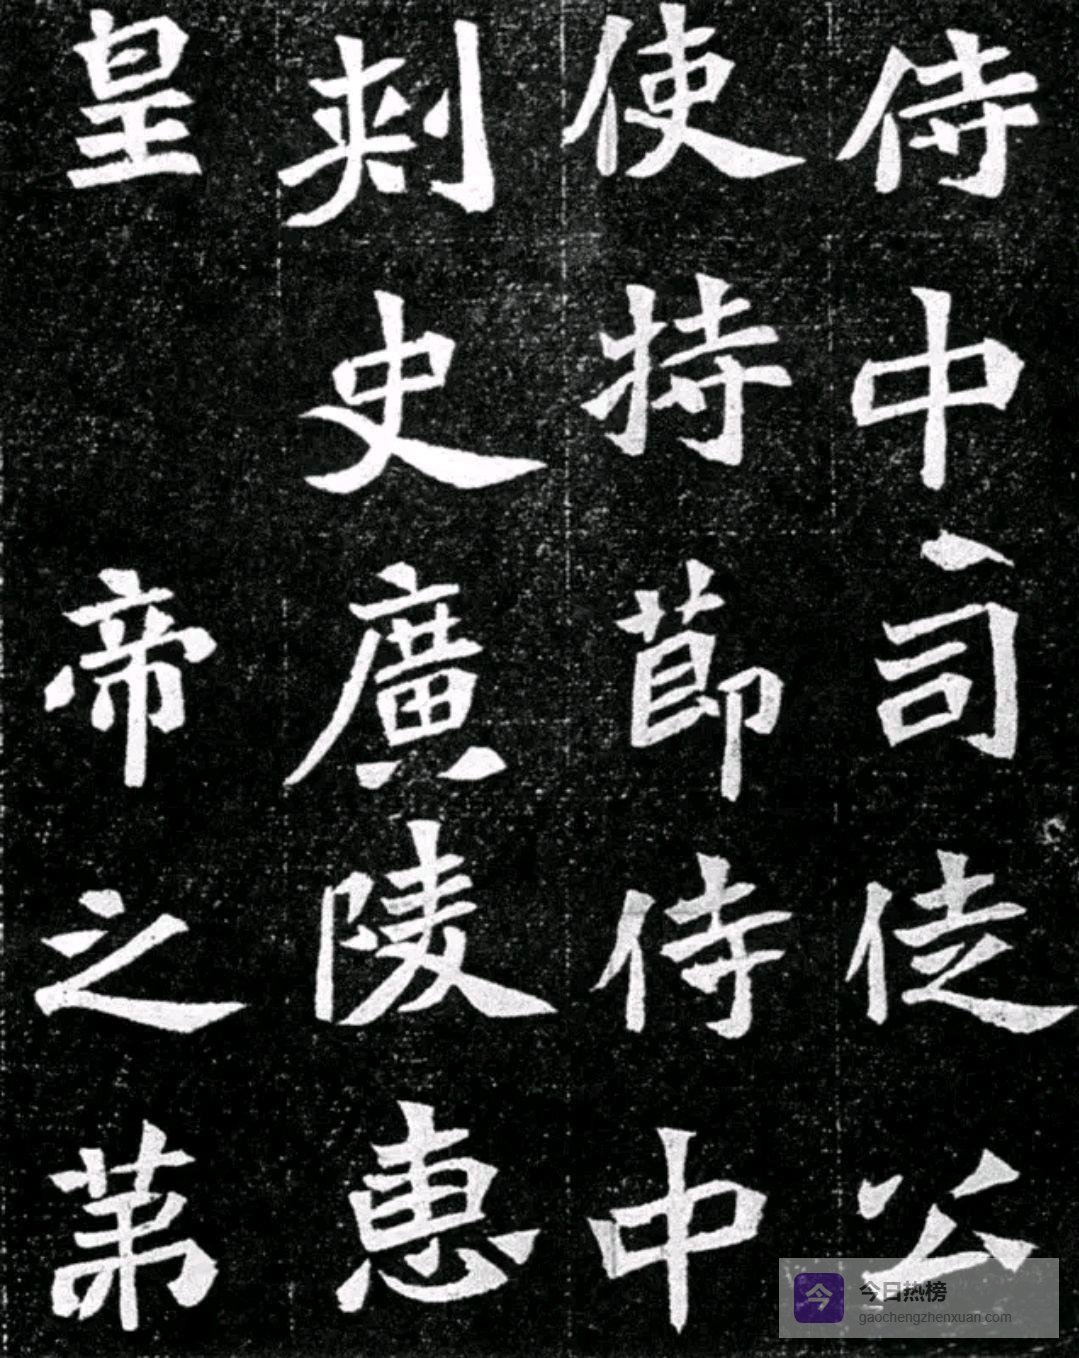 侍中司徒公
使持節侍中
刺史廣陵惠
皇帝之第
今日热榜
gaochengzhenxuan.com